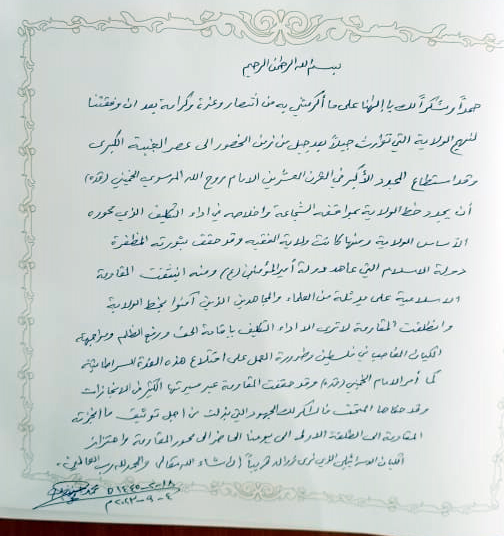 بسم الله الرحمن الرحيم
حمداً وشكراً لك يا إلهنا على ما أكرمتني به من انتصار وعزة وكرامة بعد ان وفقتنا
لنهج الولاية التي توارث جيلاً بعد جيل من زمن الحضور الى عصر الغيبة الكبرى
وقد استطاع المجدد الأكبر في القرن العشرين الامام روح الله الموسوي الخميني (قده)
أن يجدد خط الولاية بمواقفه الشجاعة واخلاصه في اداء التكليف الذي محوره
الأساس الولاية ومنها كانت ولاية الفقيه وقد حقق بثورته المظفرة
دولة الاسلام التي عاهد دولة أمير المؤمنين (ع) ومنه انبثقت المقاومة
الاسلامية على يد ثلة من العلماء والمجاهدين الذين آمنوا بخط الولاية
وانطلقت المقاومة لا ترى الا اداء التكليف باقامة الحق ورفع الظلم ومواجهة
الكيان الغاصب في فلسطين وضرورة العمل على اقتلاع هذه الغدة السرطانية
كما أمر الامام الخميني (قده) وقد حققت المقاومة عبر مسيرتها الكثير من الانجازات
وقد حكاها المتحف فالشكر لك الجهود التي بذلت من اجل توثيق ما أنجزته
المقاومة من الطلقة الاولى الى يومنا الحاضر الى محور المقاومة واهتزاز
الكيان الاسرائيلي الذي نرى زواله قريباً ان شاء الله تعالى والحمد لله رب العالمين.
١٨-٢-١٤٤٥ ه
٤-٩-٢٠٢٣ م